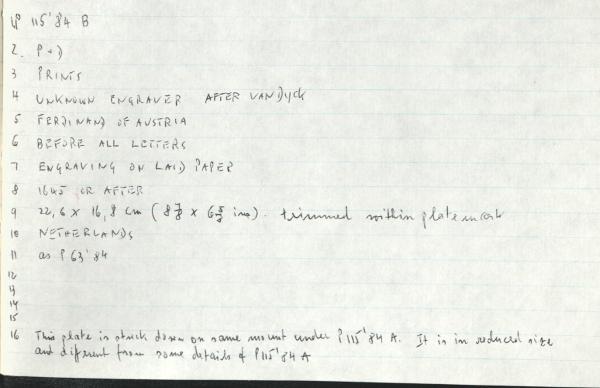 P 115'84 B
2. P+D
3 PRINTS
4 UNKNOWN ENGRAVER AFTER VAN DYCK
5 FERDINAND OF AUSTRIA
6 BEFORE ALL LETTERS
7 ENGRAVING ON LAID PAPER
8 1645 OR AFTER
9 22,6 x 16,8 cm (8 7/8 x 6 5/8 ins). trimmed within platemark
10 NETHERLANDS
11 as P 63'84
12
13
14
15
16 This plate is stuck down on same mount under P 115'84 A. It is in reduced size
and different from some details of P 115'84 A